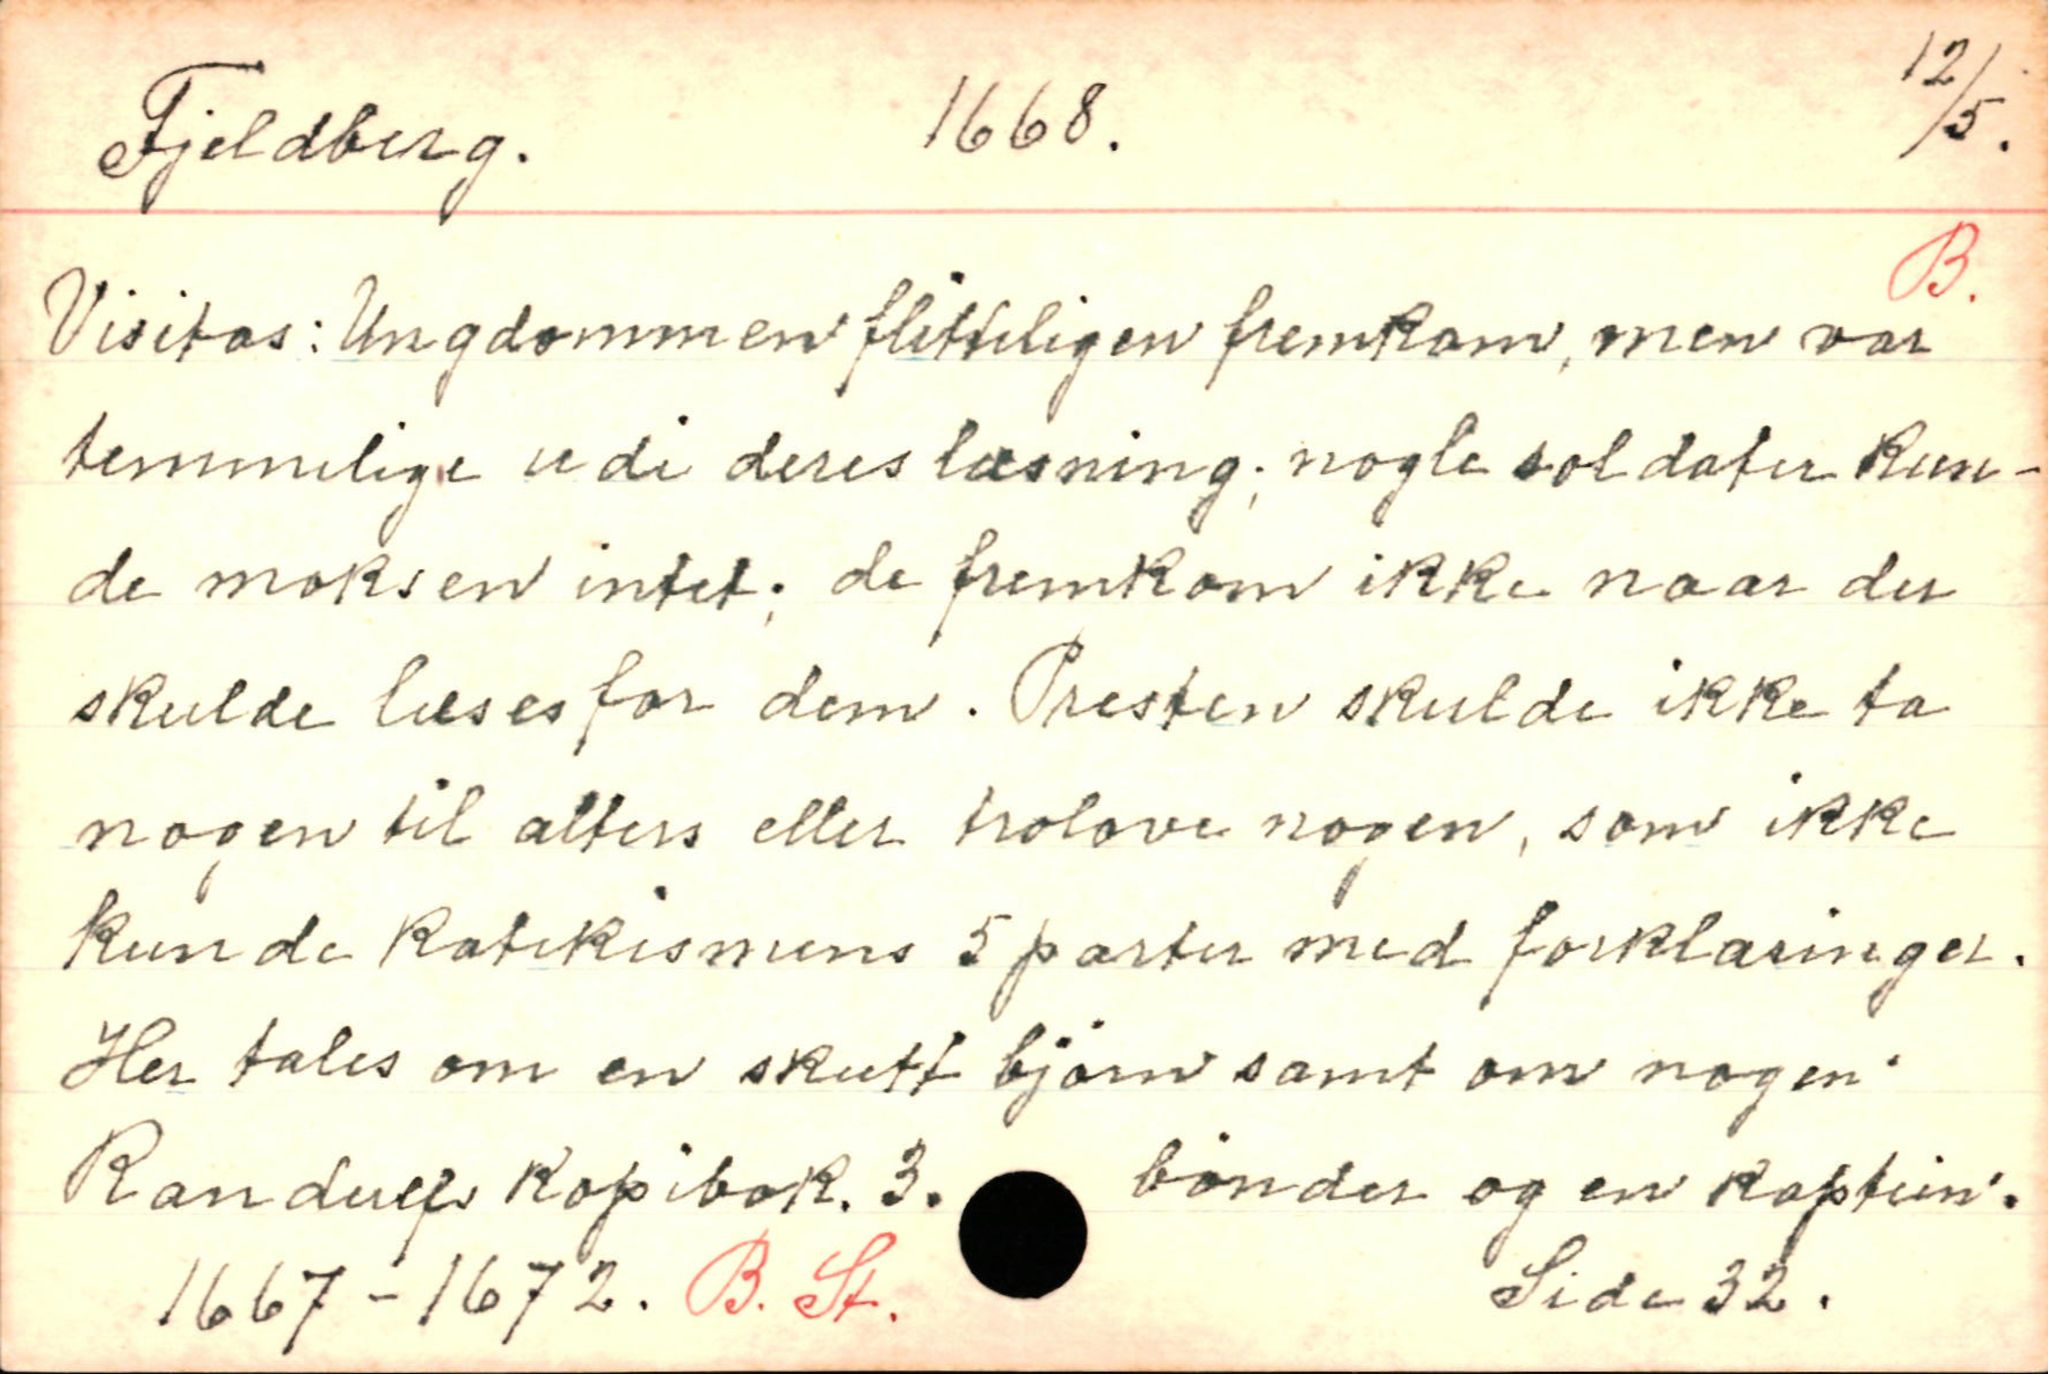 Fjeldberg. 1668. 12/5.
B.
Visitas: Ungdommen flittiligen fremkom, men var
temmelige udi deres læsning; nogle soldater kun-
de moksen intet; de fremkom ikke naar der
skulde læses for dem. Presten skulde ikke ta
nogen til alters eller trolove nogen, som ikke
kunde katekismens 5 parter med forklaringer.
Her tales om en skutt björn samt om nogen
Randulfs Kopibok. 3. bönder og en kaptein.
1667-1672. B. St. Side 32.